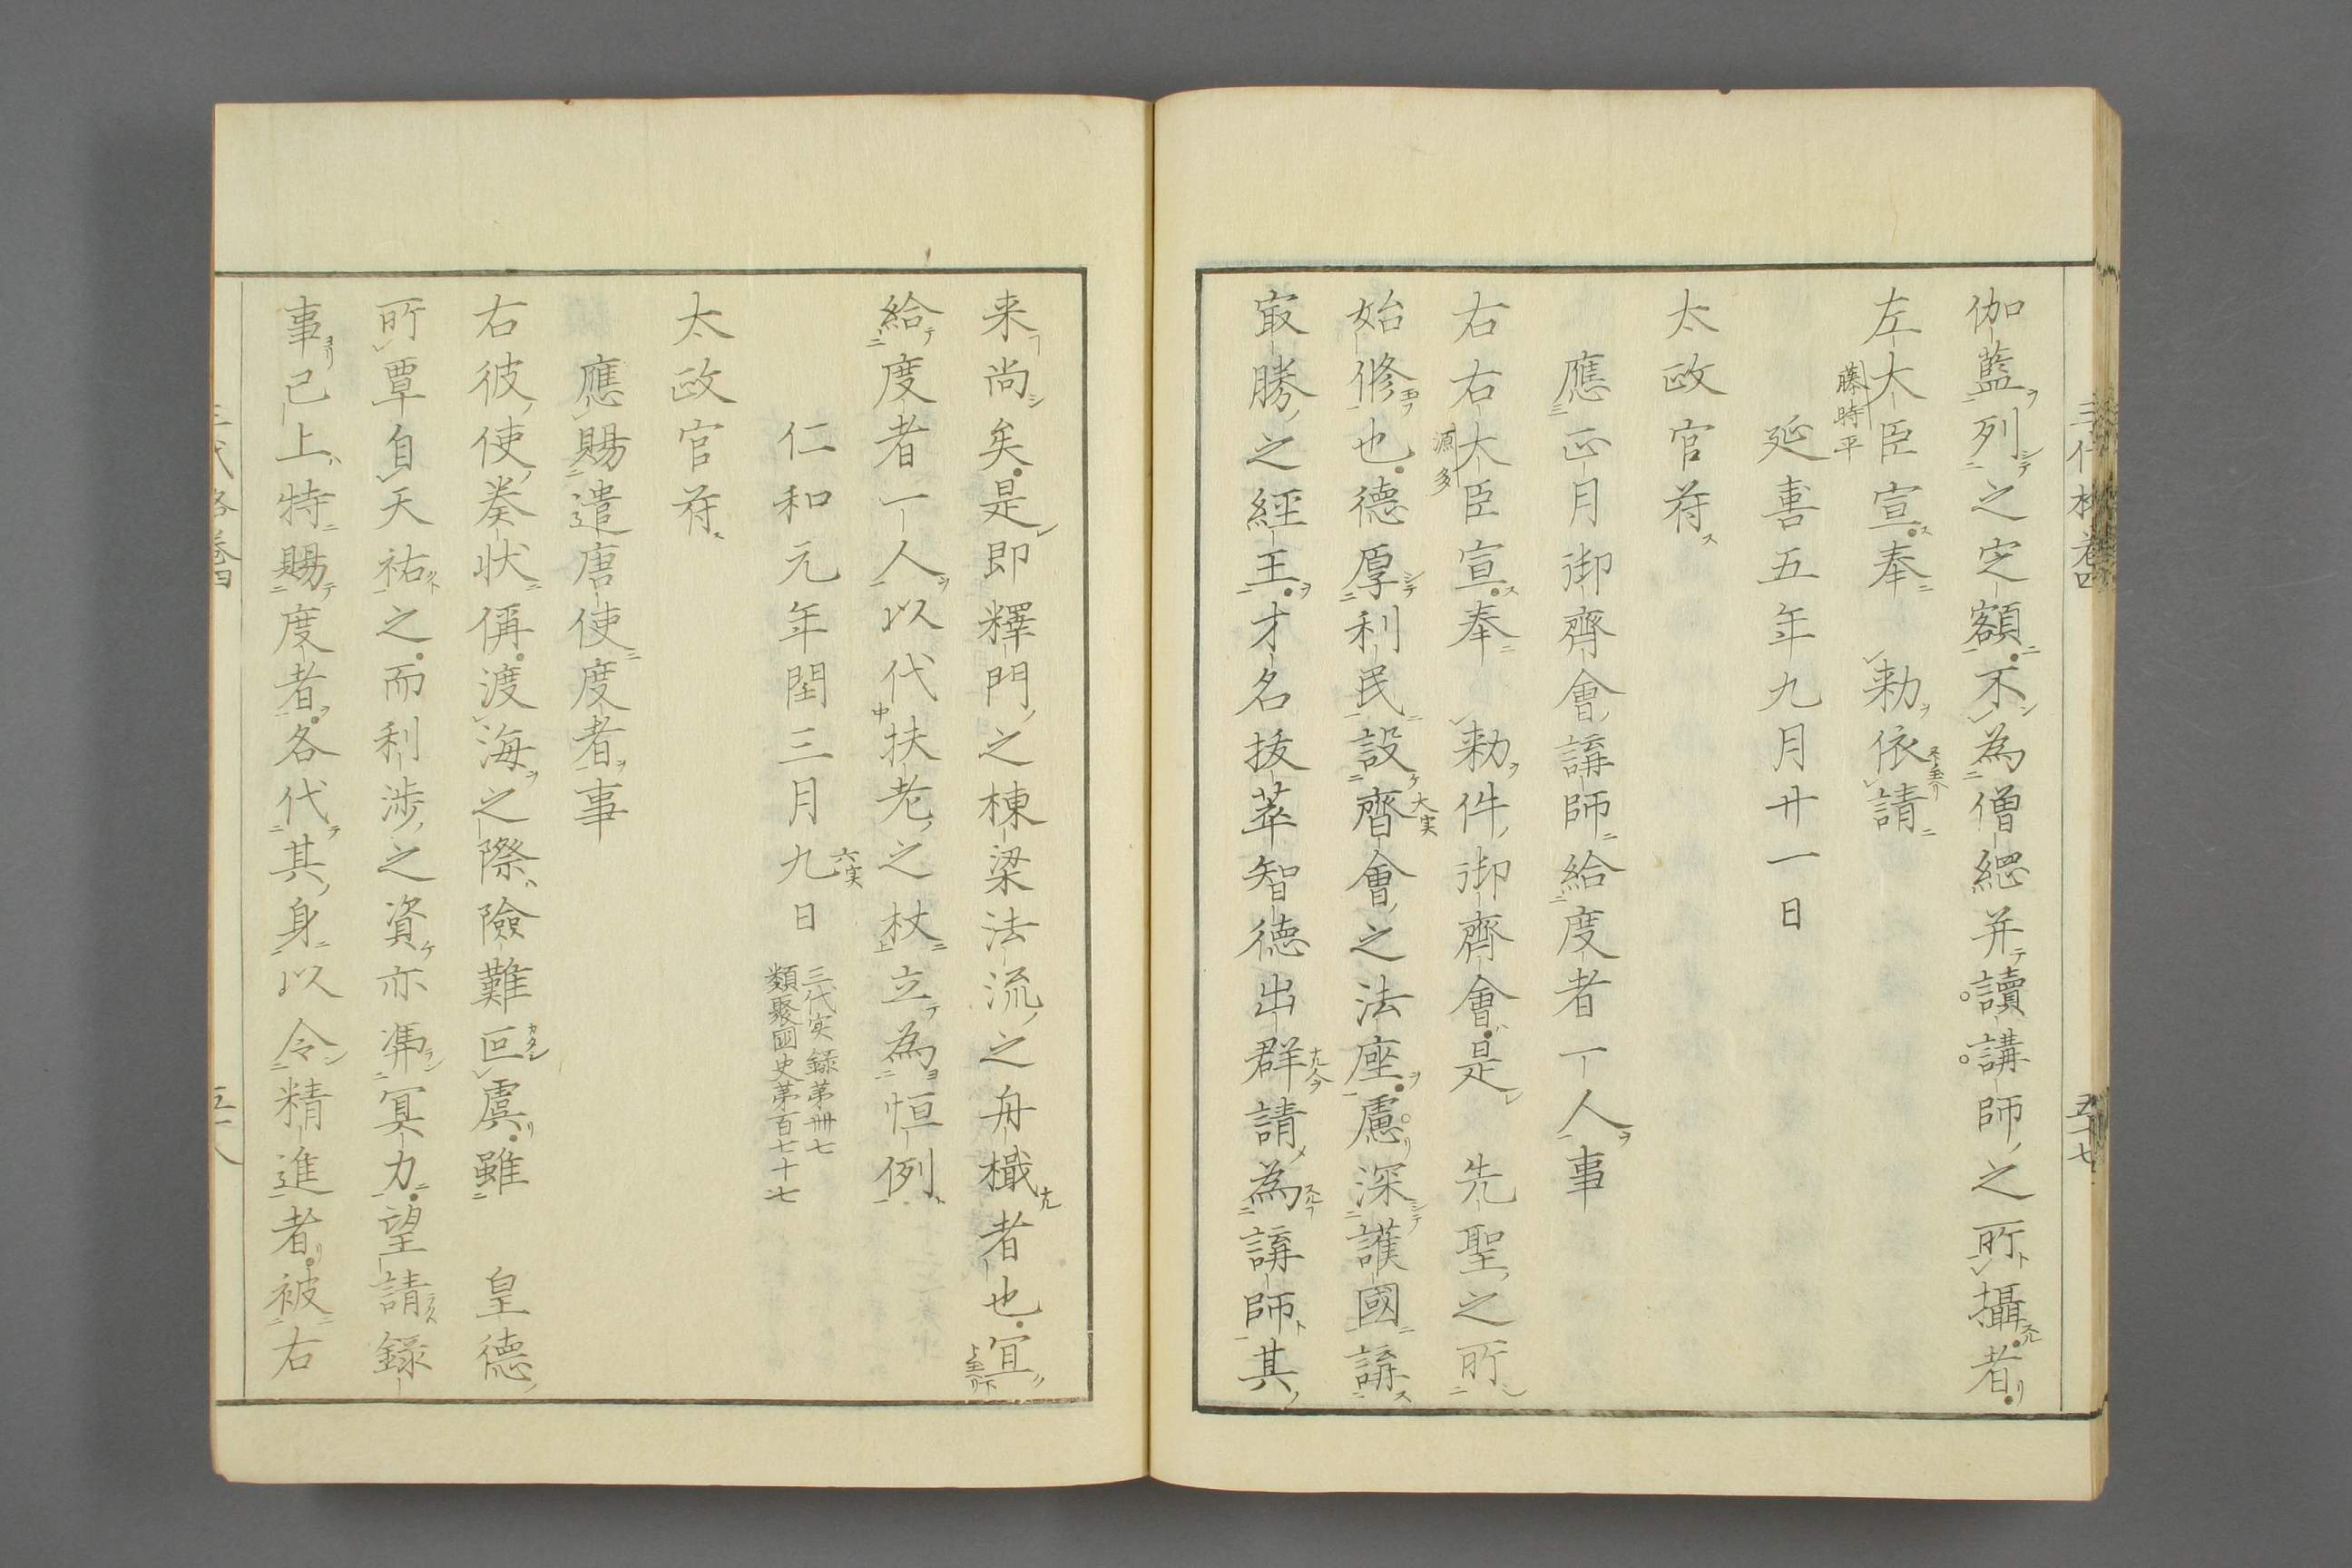 伽藍列之定額不為僧綱并讀講師之所攝者
左大臣宣奉　勅依請
藤時平
延喜五年九月廿一日
太政官符
應正月御齊會講師給度者一人事
右右大臣宣奉　勅件御齊會是　先聖之所
源多
始修也德厚利民設齊會之法座慮深護國講
大実
㝡勝之經王才名拔萃智德出群請為講師其
三代格卷四
五十七
来尚矣是即釋門之棟梁法流之舟檝者也宜
給度者一人以代扶老之杖立為恒例
仁和元年閏三月九日
六実
三代実録第卌七
類聚國史第百七十七
太政官符
應賜遣唐使度者事
右彼使奏状偁渡海之際險難叵虞雖　皇德
所覃自天祐之而利涉之資亦憑冥力望請錄
事已上特賜度者各代其身以令精進者被右